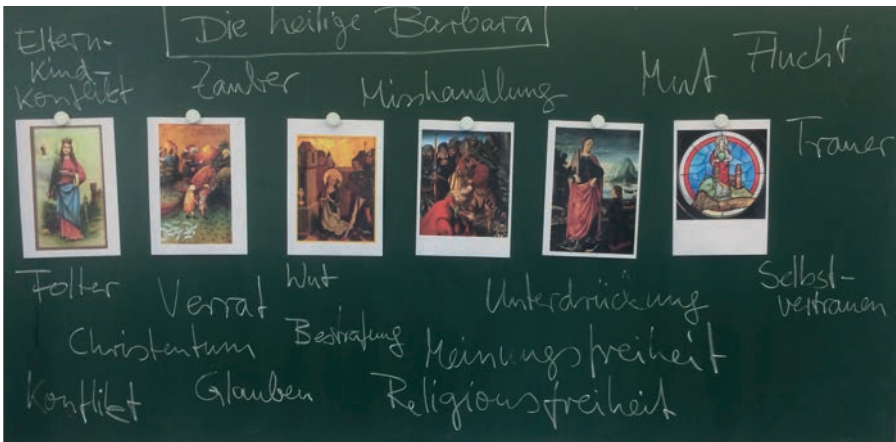 Die heilige Barbara
Eltern-
Kind-
Konflikt
Zauber
Misshandlung
Mut
Flucht
Trauer
Folter
Verrat
Wut
Unterdrückung
Selbst-
vertrauen
Christentum
Bestrafung
Meinungsfreiheit
Konflikt
Glauben
Religionsfreiheit